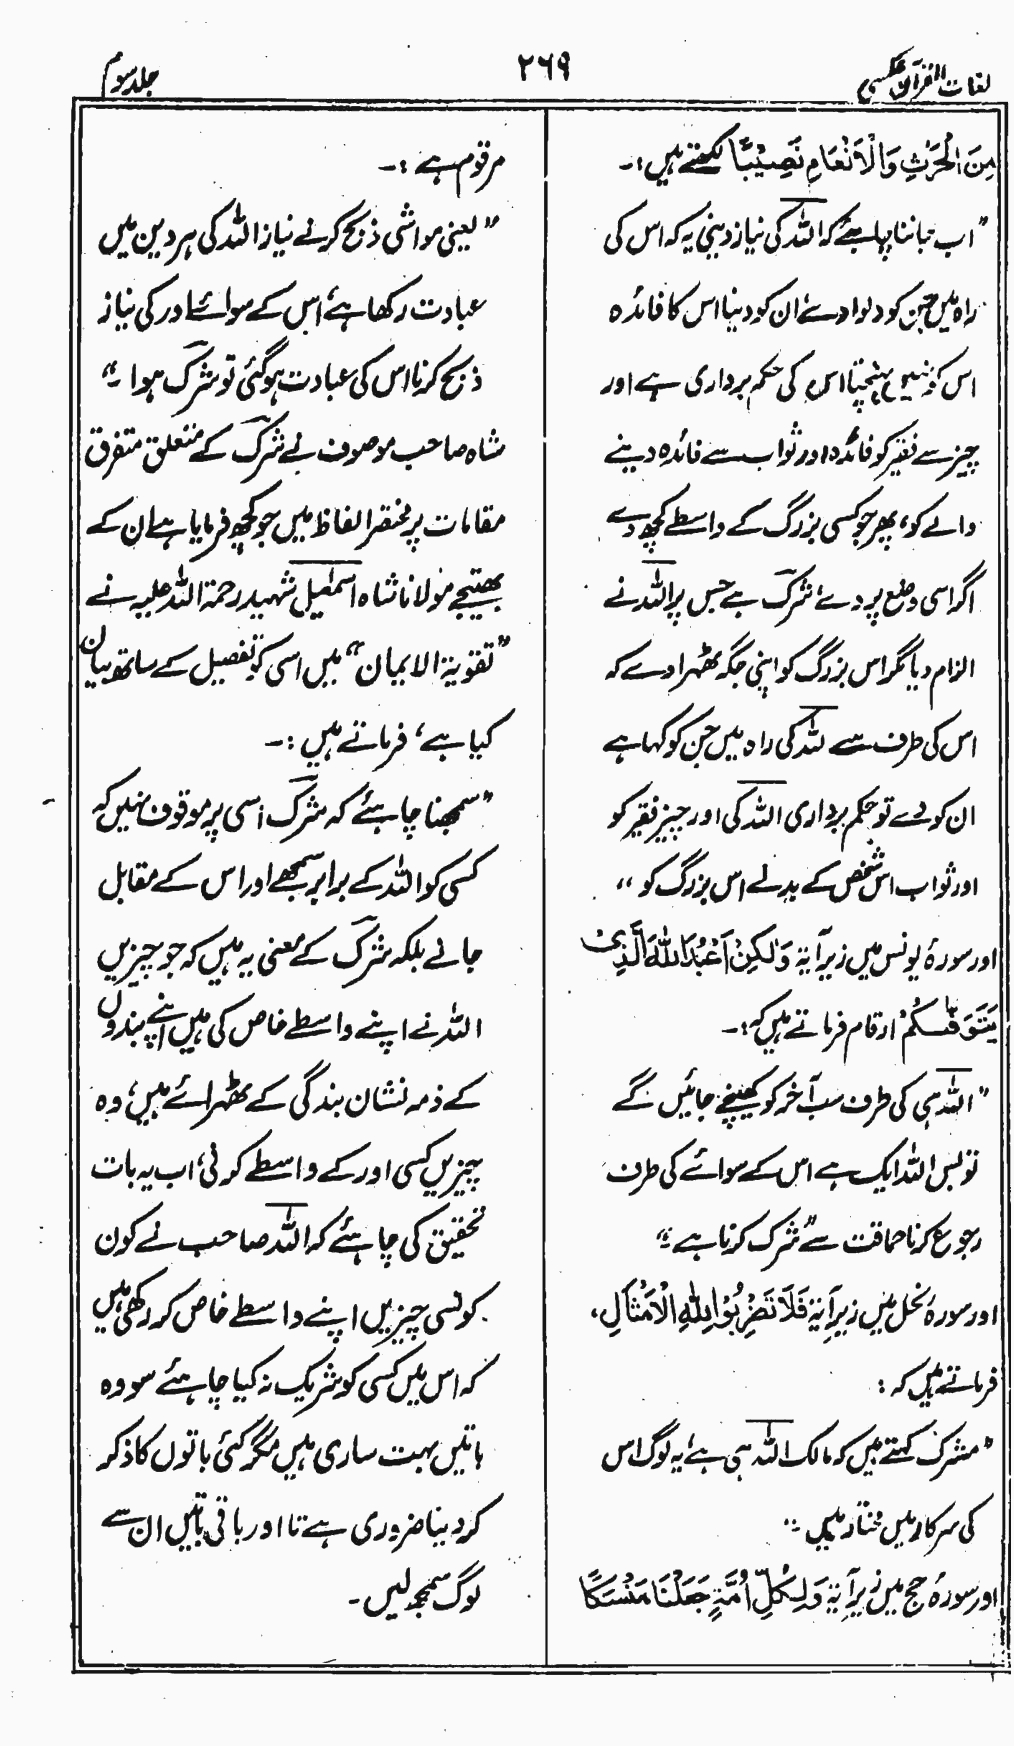 لغات القرآن عکسی
۲۶۹
جلد سوم
مِنَ الْحَرْثِ وَالْاَنْعَامِ نَصِیْبًا لکھتے ہیں:۔
"اب جاننا چاہئے کہ اللہ کی نیاز دینی یہ کہ اس کی
راہ میں جن کو دلوا دے ان کو دینا اس کا فائدہ
اس کو نہیں پہنچتا اس کی حکم برداری ہے اور
چیز سے فقیر کو فائدہ اور ثواب سے فائدہ دینے
والے کو، پھر جو کسی بزرگ کے واسطے کچھ دے
اگر اسی وضع پر دے شرک ہے جس پر اللہ نے
الزام دیا مگر اس بزرگ کو اپنی جگہ ٹھہرا دے کہ
اس کی طرف سے للہ کی راہ میں جن کو کہا ہے
ان کو دے تو حکم برداری اللہ کی اور چیز فقیر کو
اور ثواب اس شخص کے بدلے اس بزرگ کو"
اور سورۂ یونس میں زیر آیۃ وَلٰکِنْ اَعْبُدُ اللّٰهَ الَّذِیْ
یَتَوَفّٰىکُمْ ارقام فرماتے ہیں کہ:۔
"اللہ ہی کی طرف سب آخر کو کھینچے جائیں گے
تو بس اللہ ایک ہے اس کے سوائے کی طرف
رجوع کرنا حماقت سے شرک کرنا ہے"
اور سورۂ نحل میں زیر آیۃ فَلَا تَضْرِبُوْا لِلّٰهِ الْاَمْثَالَ،
فرماتے ہیں کہ:
"مشرک کہتے ہیں کہ مالک اللہ ہی ہے یہ لوگ اس
کی سرکار میں مختار ہیں"
اور سورۂ حج میں زیر آیۃ وَلِکُلِّ اُمَّةٍ جَعَلْنَا مَنْسَکًا
مرقوم ہے:۔
"یعنی مواشی ذبح کرنے نیاز اللہ کی ہر دین میں
عبادت رکھا ہے، اس کے سوائے اور کی نیاز
ذبح کرنا اس کی عبادت ہو گئی تو شرک ہوا۔"
شاہ صاحب موصوف نے شرک کے متعلق متفرق
مقامات پر مختصر الفاظ میں جو کچھ فرمایا ہے ان کے
بھتیجے مولانا شاہ اسمٰعیل شہید رحمۃ اللہ علیہ نے
"تقویۃ الایمان" میں اسی کو تفصیل کے ساتھ بیان
کیا ہے، فرماتے ہیں:۔
"سمجھنا چاہئے کہ شرک اسی پر موقوف نہیں کہ
کسی کو اللہ کے برابر سمجھے اور اس کے مقابل
جانے بلکہ شرک کے معنی یہ ہیں کہ جو چیزیں
اللہ نے اپنے واسطے خاص کی ہیں اپنے بندوں
کے ذمہ نشان بندگی کے ٹھہرائے ہیں، وہ
چیزیں کسی اور کے واسطے کرنی، اب یہ بات
تحقیق کی چاہئے کہ اللہ صاحب نے کون
کونسی چیزیں اپنے واسطے خاص کر رکھی ہیں
کہ اس میں کسی کو شریک نہ کیا چاہئے سو وہ
باتیں بہت ساری ہیں مگر کئی باتوں کا ذکر
کر دینا ضروری ہے تا اور باقی باتیں ان سے
لوگ سمجھ لیں۔